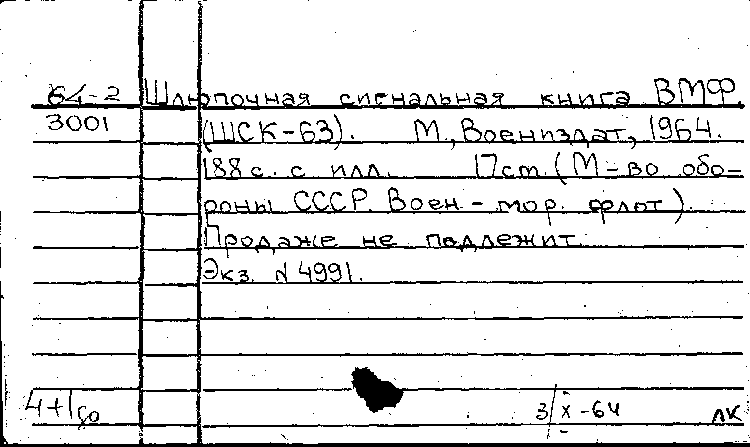 64-2 Шлюпочная сигнальная книга ВМФ
3001 (ШСК-63). М., Воениздат, 1964.
188 с. с илл. 17 см. (М-во обо-
роны СССР. Воен-мор. флот).
Продаже не подлежит.
Экз. № 4991.
3/X-64 ЛК